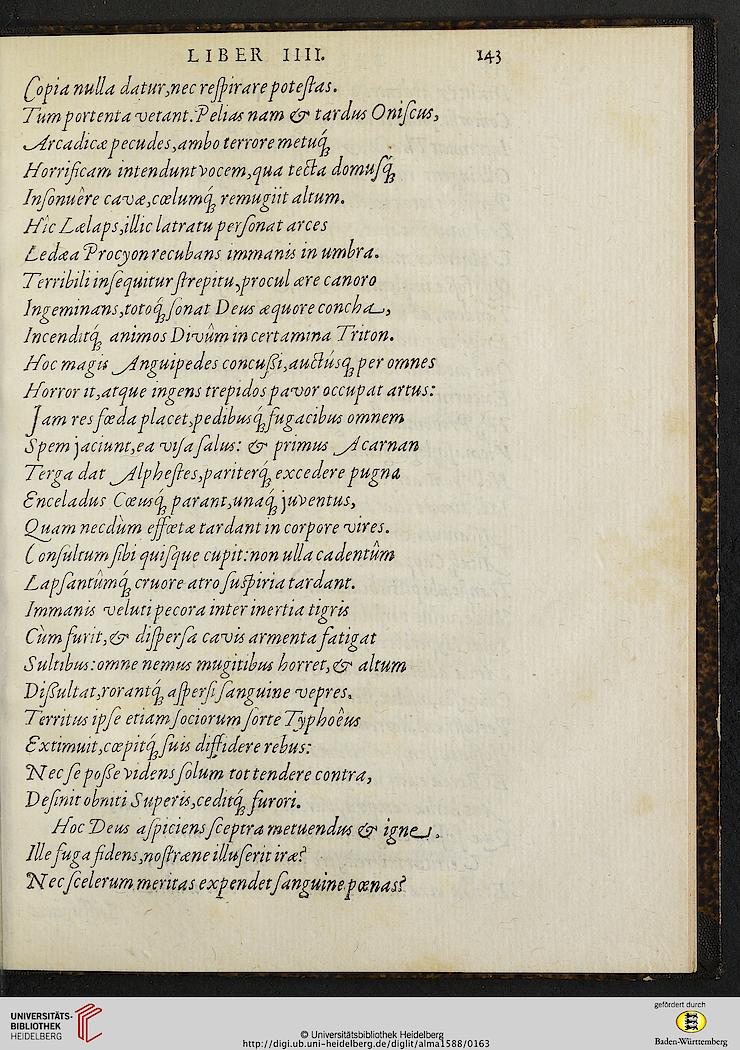 LIBER IIII. 143
Copia nulla datur,nec reſpirare poteſtas.
Tum portenta vetant.Pelias nam & tardus Oniſcus,
Arcadicæ pecudes,ambo terrore metuq́ꝫ
Horrificam intendunt vocem,qua tecta domuſq́ꝫ
Inſonuêre cavæ,cœlumq́ꝫ remugiit altum.
Hîc Lælaps,illic latratu perſonat arces
Ledæa Procyon recubans immanis in umbra.
Terribili inſequitur ſtrepitu,procul ære canoro
Ingeminans,totoq́ꝫ ſonat Deus æquore concha,
Incenditq́ꝫ animos Divûm in certamina Triton.
Hoc magis Anguipedes concuſſi,auctúsq́ꝫ per omnes
Horror it,atque ingens trepidos pavor occupat artus:
Jam res fœda placet,pedibusq́ꝫ fugacibus omnem
Spem jaciunt,ea viſa ſalus: & primus Acarnan
Terga dat Alpheſtes,pariterq́ꝫ excedere pugna
Enceladus Cœusq́ꝫ parant,unaq́ꝫ juventus,
Quam necdùm effœtæ tardant in corpore vires.
Conſultum ſibi quiſque cupit:non ulla cadentûm
Lapſantûmq́ꝫ cruore atro ſuſpiria tardant.
Immanis veluti pecora inter inertia tigris
Cùm furit,& diſperſa cavis armenta fatigat
Sultibus:omne nemus mugitibus horret,& altum
Diſſultat,rorantq́ꝫ aſperſi ſanguine vepres.
Territus ipſe etiam ſociorum ſorte Typhoêus
Extimuit,cœpitq́ꝫ ſuis diffidere rebus:
Nec ſe poſſe videns ſolum tot tendere contra,
Deſinit obniti Superis,ceditq́ꝫ furori.
Hoc Deus aſpiciens ſceptra metuendus & igne.
Ille fuga fidens,noſtræne illuſerit iræ?
Nec ſcelerum meritas expendet ſanguine pœnas?
UNIVERSITÄTS-
BIBLIOTHEK
HEIDELBERG
© Universitätsbibliothek Heidelberg
http://digi.ub.uni-heidelberg.de/diglit/alma1588/0163
gefördert durch
Baden-Württemberg